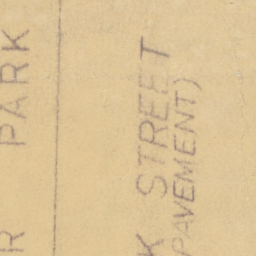 R PARK
K STREET
PAVEMENT)